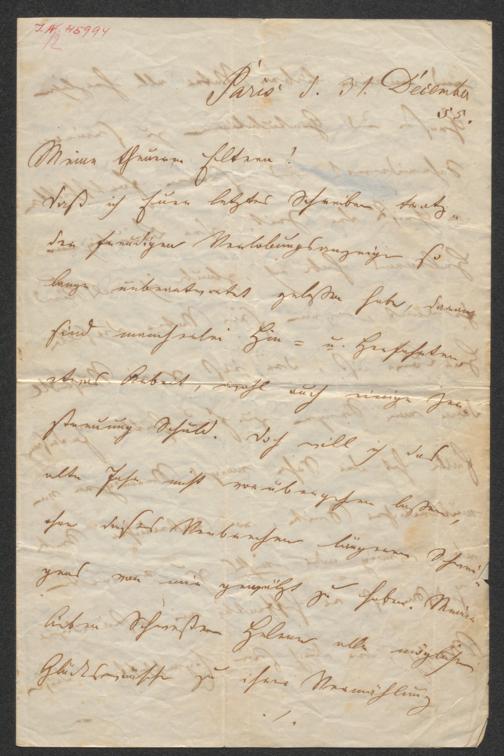 I.N. 45994
Paris d. 31. December
55.
Meine theuern Eltern!
Daß ich Euer letztes Schreiben trotz
der freudigen Verlobungsanzeige so
lange unbeantwortet gelassen habe, daran
sind mancherlei Hin- u. Herfahrten,
etwas Arbeit, wohl auch einige Zer
streuung Schuld. Doch will ich das
alte Jahr nicht vorübergehen lassen,
ohne dieses Verbrechen längeren Schwei
gens von mir gewälzt zu haben. Meiner
lieben Schwester Helene alle möglichen
Glückwünsche zu ihrer Vermählung
./.